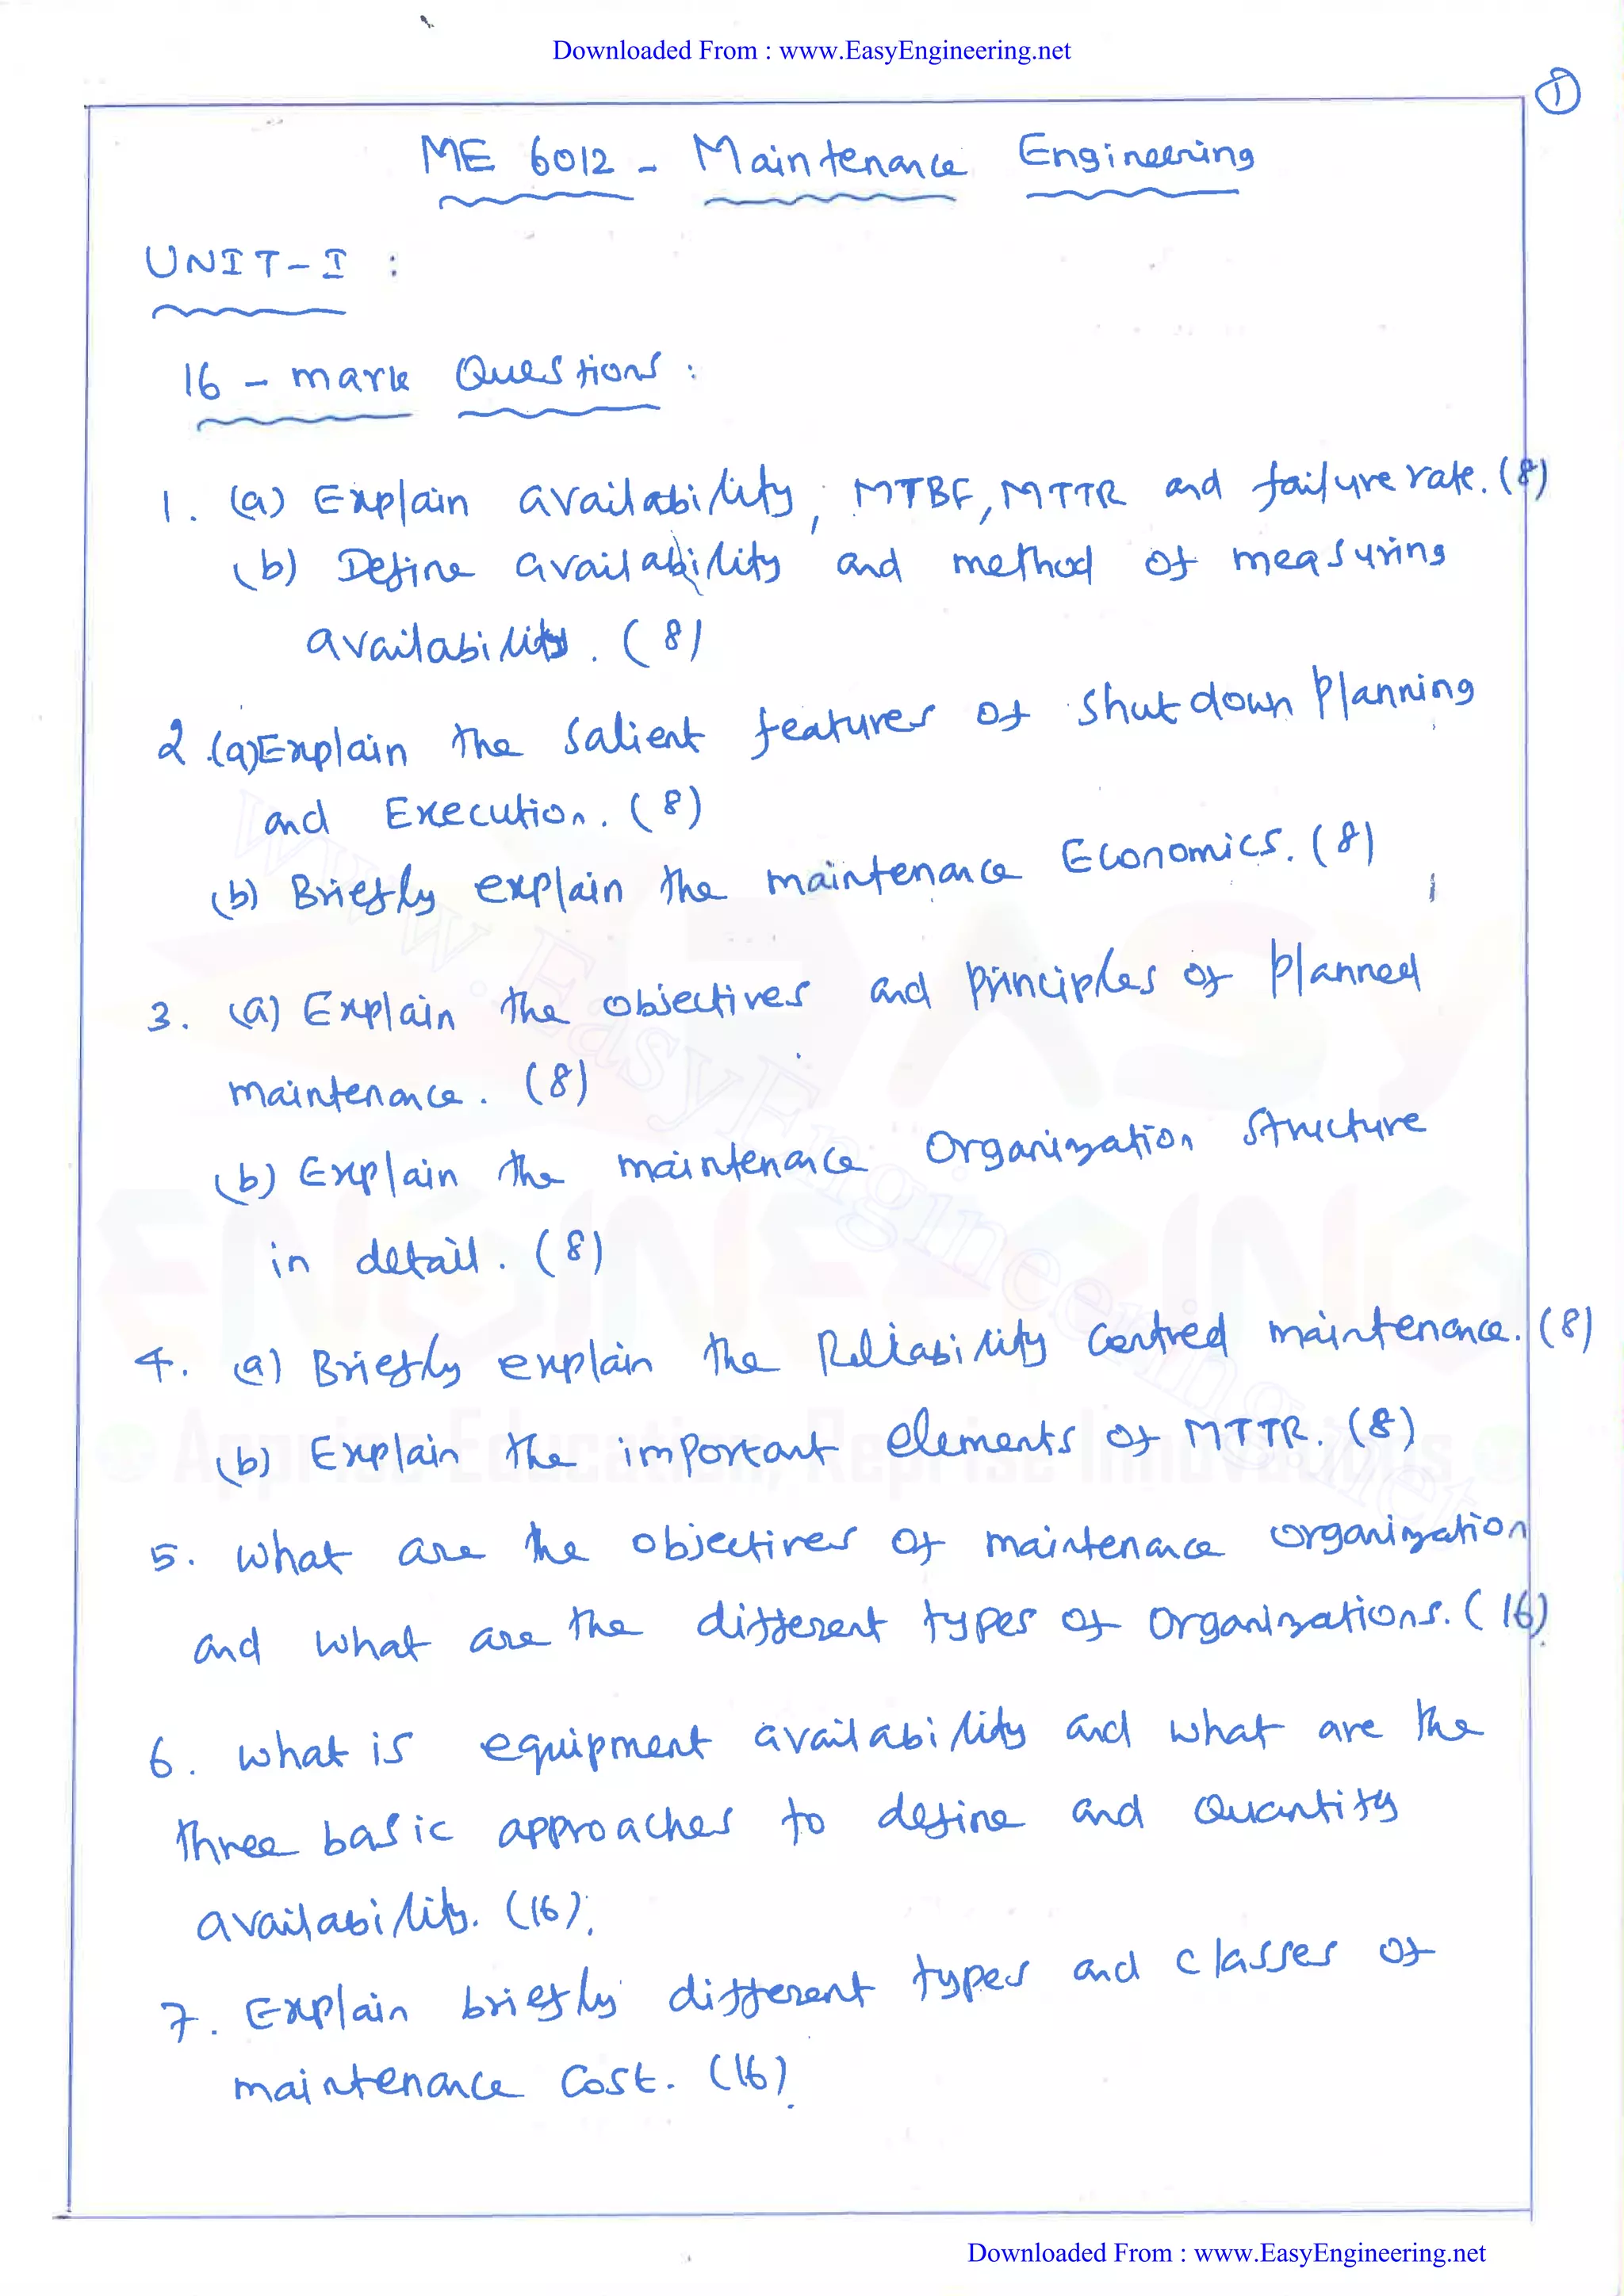 Downloaded From : www.EasyEngineering.net
1
ME 6012 - Maintenance Engineering
UNIT-I :
16 - mark Questions :
1. (a) Explain availability, MTBF, MTTR and failure rate. (8)
(b) Define availability and method of measuring
availability. (8)
2.(a)Explain the Salient features of Shutdown Planning
and Execution. (8)
(b) Briefly explain the maintenance Economics. (8)
3. (a) Explain the objectives and Principles of Planned
maintenance. (8)
(b) Explain the maintenance Organization Structure
in detail. (8)
4. (a) Briefly explain the Reliability Centred maintenance. (8)
(b) Explain the important elements of MTTR. (8)
5. What are the objectives of maintenance organization
and what are the different types of Organizations. (16)
6. What is equipment availability and what are the
three basic approaches to define and Quantity
availability. (16).
7. Explain briefly different types and classes of
maintenance Cost. (16).
www.EasyEngineering.net
EASY
ENGINEERING
Apprise Education, Reprise Innovations
Downloaded From : www.EasyEngineering.net